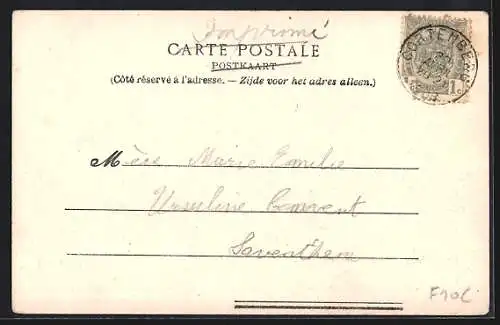 Imprimé
CARTE POSTALE
POSTKAART
(Côté réservé à l'adresse. — Zijde voor het adres alleen.)
CORTENBERG
1 c
Mère Marie Emilie
Ursuline Convent
Saventhem
F10C